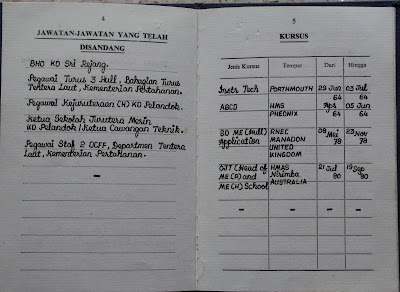 4
JAWATAN-JAWATAN YANG TELAH
DISANDANG
BHO KD Sri Rejang.
Pegawai Turus 3 Hull, Bahagian Turus
Tentera Laut, Kementerian Pertahanan.
Pegawai Kejuruteraan (H) KD Pelandok.
Ketua Sekolah Jurutera Mesin
KD Pelandok/Ketua Cawangan Teknik.
Pegawai Staf 2 OCFF, Departmen Tentera
Laut, Kementerian Pertahanan.
-
5
KURSUS
Jenis Kursus Tempat Dari Hingga
Instr Tech PORTHMOUTH 29 Jun 03 Jul
64 64
ABCD HMS Apr 05 Jun
PHEONIX 64 64
SD ME (Hull) RNEC 08 23 Nov
Application MANADON Mei 78
UNITED 78
KINGDOM
OJT (Head of HMAS 21 Jul 19 Sep
ME(P) and Nirimba 80 80
ME(H) School AUSTRALIA
- - - -